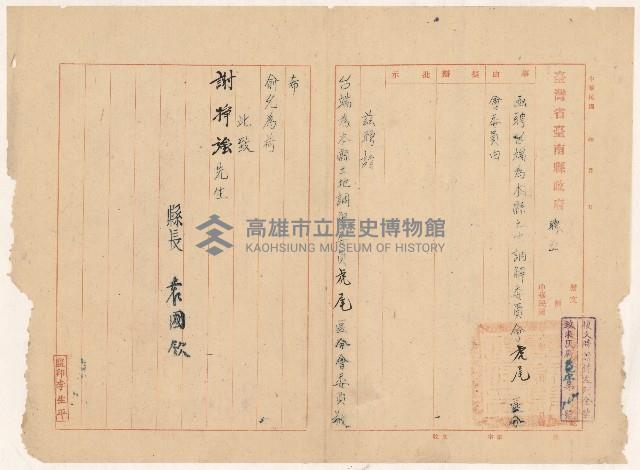 中華民國 年 月 日
臺灣省臺南縣政府
事由
擬辦
批示
函聘台端為本縣土地調解委員會虎尾區分
會委員由
茲聘請
台端為本縣土地調解委員會虎尾區分會委員敬
希
俞允為荷
此致
謝掙強先生
縣長 袁國欽
監印李生平
高雄市立歷史博物館
KAOHSIUNG MUSEUM OF HISTORY